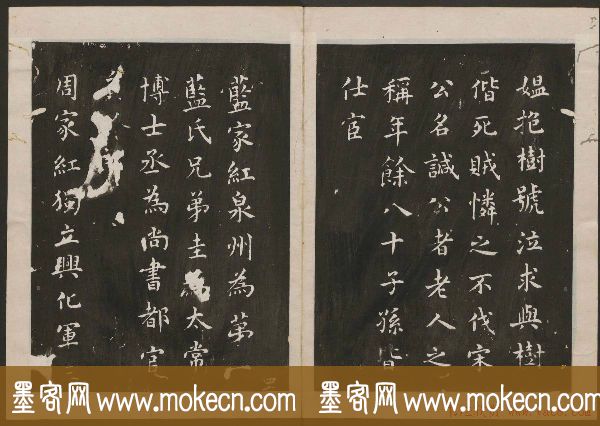 媪抱樹號泣求與樹
偕死賊憐之不伐宋
公名諴公者老人之
稱年餘八十子孫皆
仕宦
藍家紅泉州為第一
藍氏兄弟圭為太常
博士丞為尚書都官
周家紅獨立興化軍
墨客网 www.mokecn.com 墨客网 www.mokecn.com